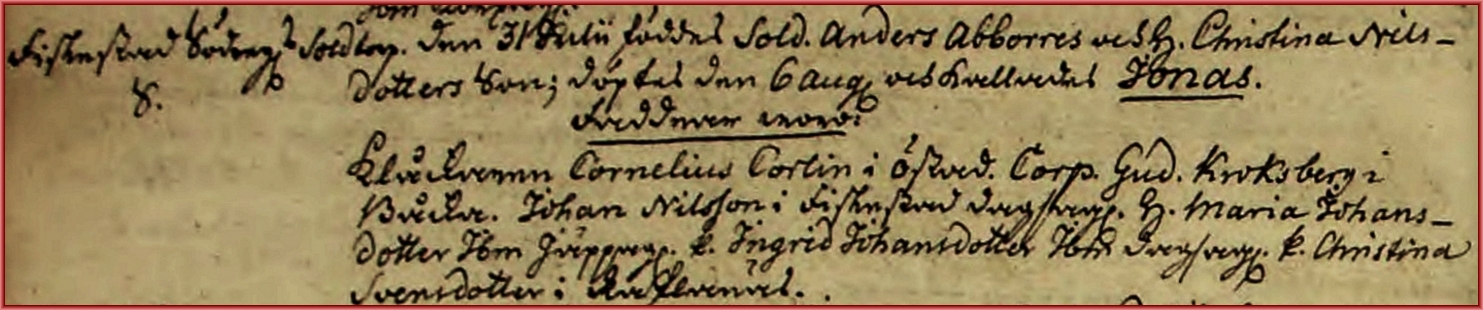 Fiskestad Söderg. Soldtorp. den 31 Julii föddes Sold. Anders Abborres och H. Christina Nils-
8. dotters Son; döptes den 6 aug. och kallades Jonas.
Faddrar woro:
Klåckaren Cornelius Corlin i Östad. Corp. Gud. Kroksberg i
Backa. Johan Nilsson i Fiskestad H. Maria Johans-
dotter Ibm k. Ingrid Johansdotter Ibm k. Christina
Svensdotter i